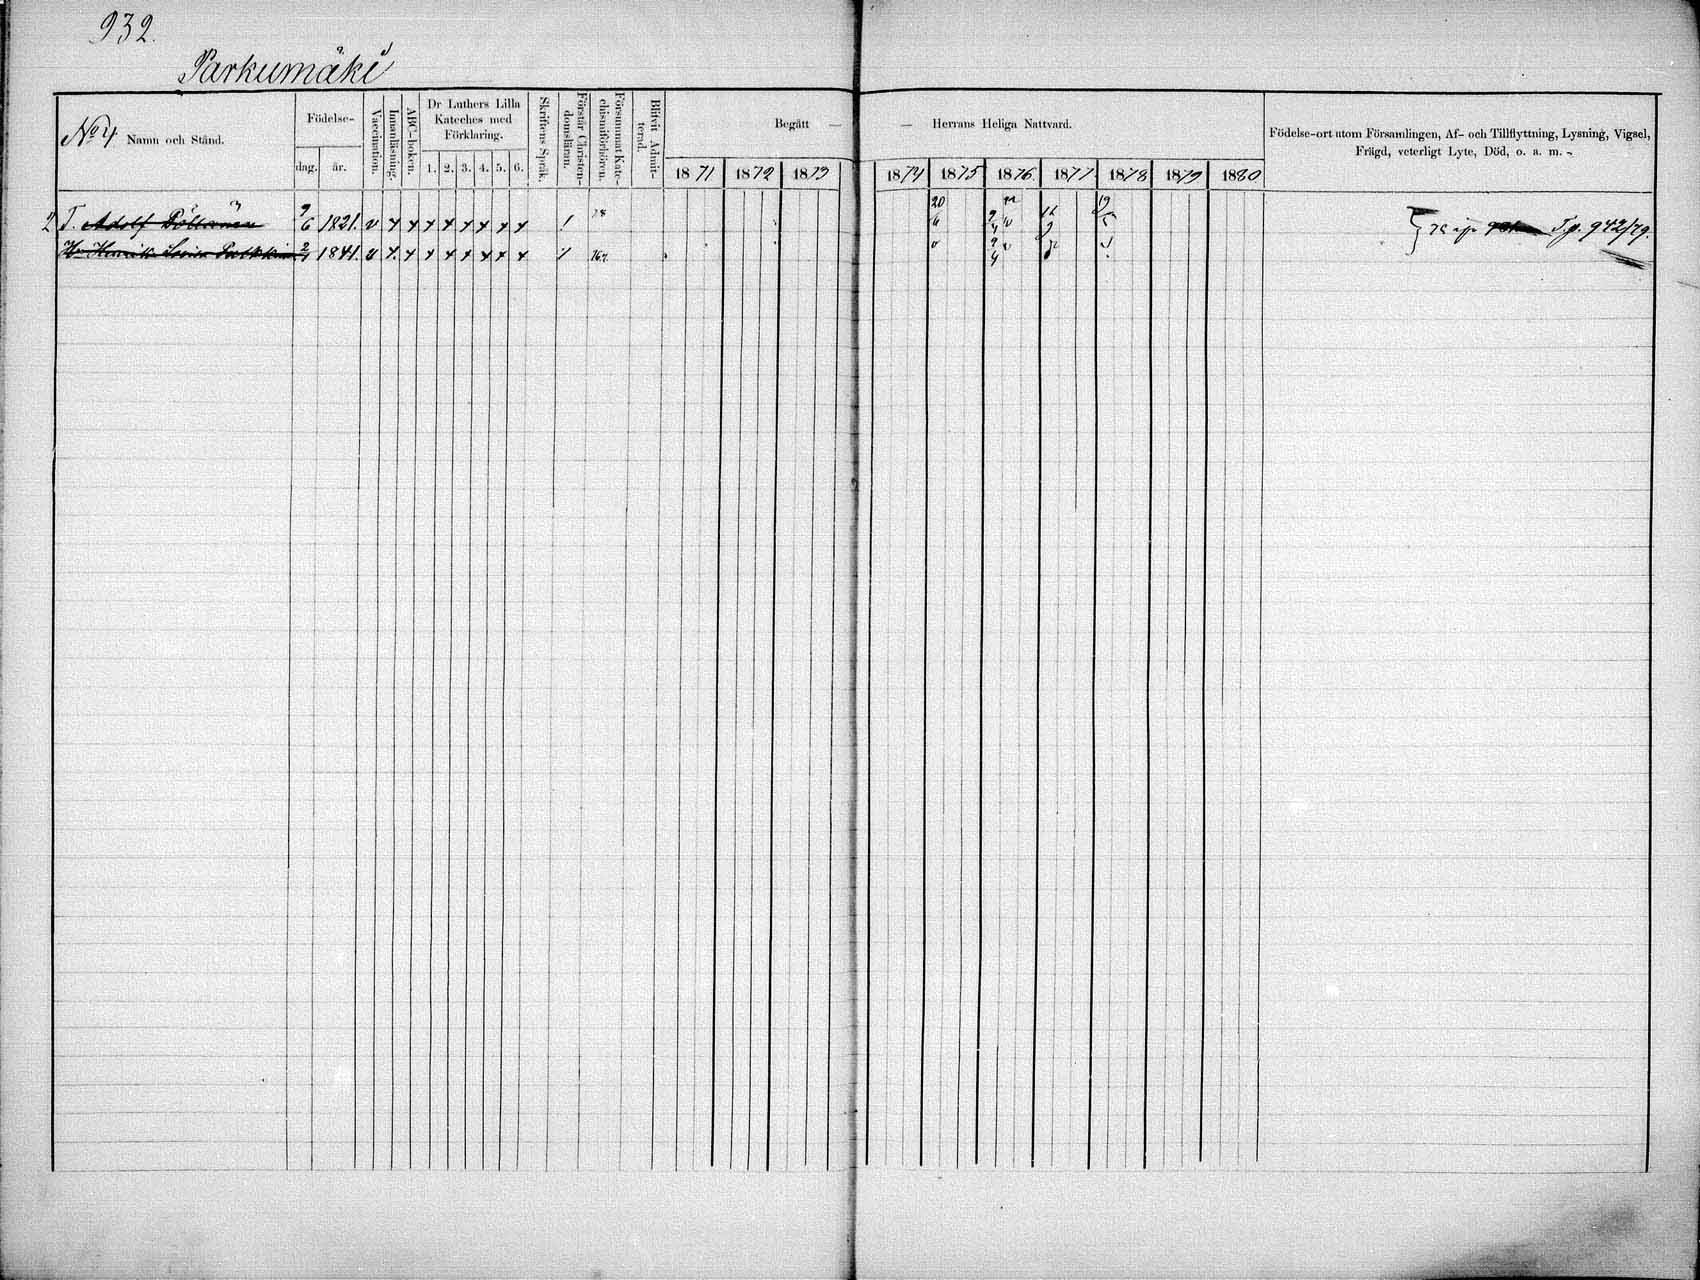 932.
Parkumäki
No 4 Namn och Stånd.
Födelse-
dag. år.
Vaccination.
Innanläsning.
ABC-boken.
Dr Luthers Lilla
Kateches med
Förklaring.
1. 2. 3. 4. 5. 6.
Skriftens Språk.
Förstår Christen-
domsläran.
Försummat Kate-
chismiförhören.
Blifvit Admit-
terad.
Begått — — Herrans Heliga Nattvard.
1871 1872 1873 1874 1875 1876 1877 1878 1879 1880
Födelse-ort utom Församlingen, Af- och Tillflyttning, Lysning, Vigsel,
Frägd, veterligt Lyte, Död, o. a. m.
2 T. Adolf Pöllänen 9/6 1821. T.p. 942/79.
H. Henrika Lovisa 2/4 1841.